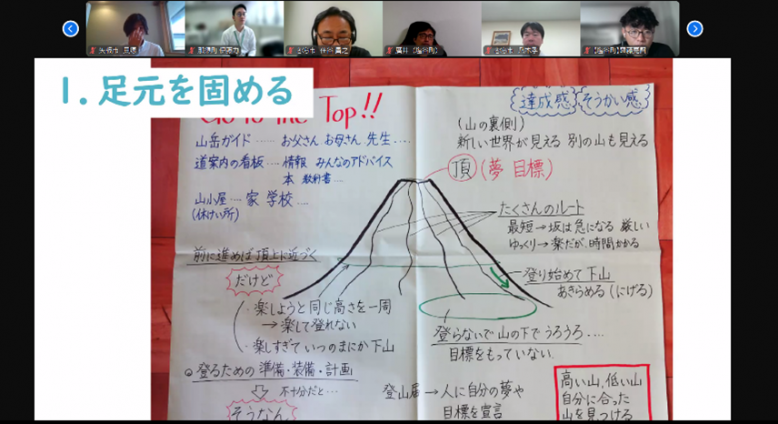 1. 足元を固める
Go to the Top!!
達成感 そうかい感
(山の裏側)
新しい世界が見える 別の山も見える
山岳ガイド…… お父さん お母さん 先生....
道案内の看板.... 情報 みんなのアドバイス
本 教科書...
山小屋... 家 学校....
(休けい所)
頂 (夢 目標)
たくさんのルート
最短→坂は急になる 厳しい
ゆっくり→楽だが、時間かかる
前に進めば頂上に近づく
だけど
・楽しようと同じ高さを一周
→楽して登れない
・楽しすぎていつのまにか下山
登り始めて下山
あきらめる(にげる)
登らないで山の下でうろうろ....
目標をもっていない
登るための準備・装備・計画
不十分だと…
そうなん
登山届→人に自分の夢や
目標を宣言
高い山、低い山
自分に合った
山を見つける